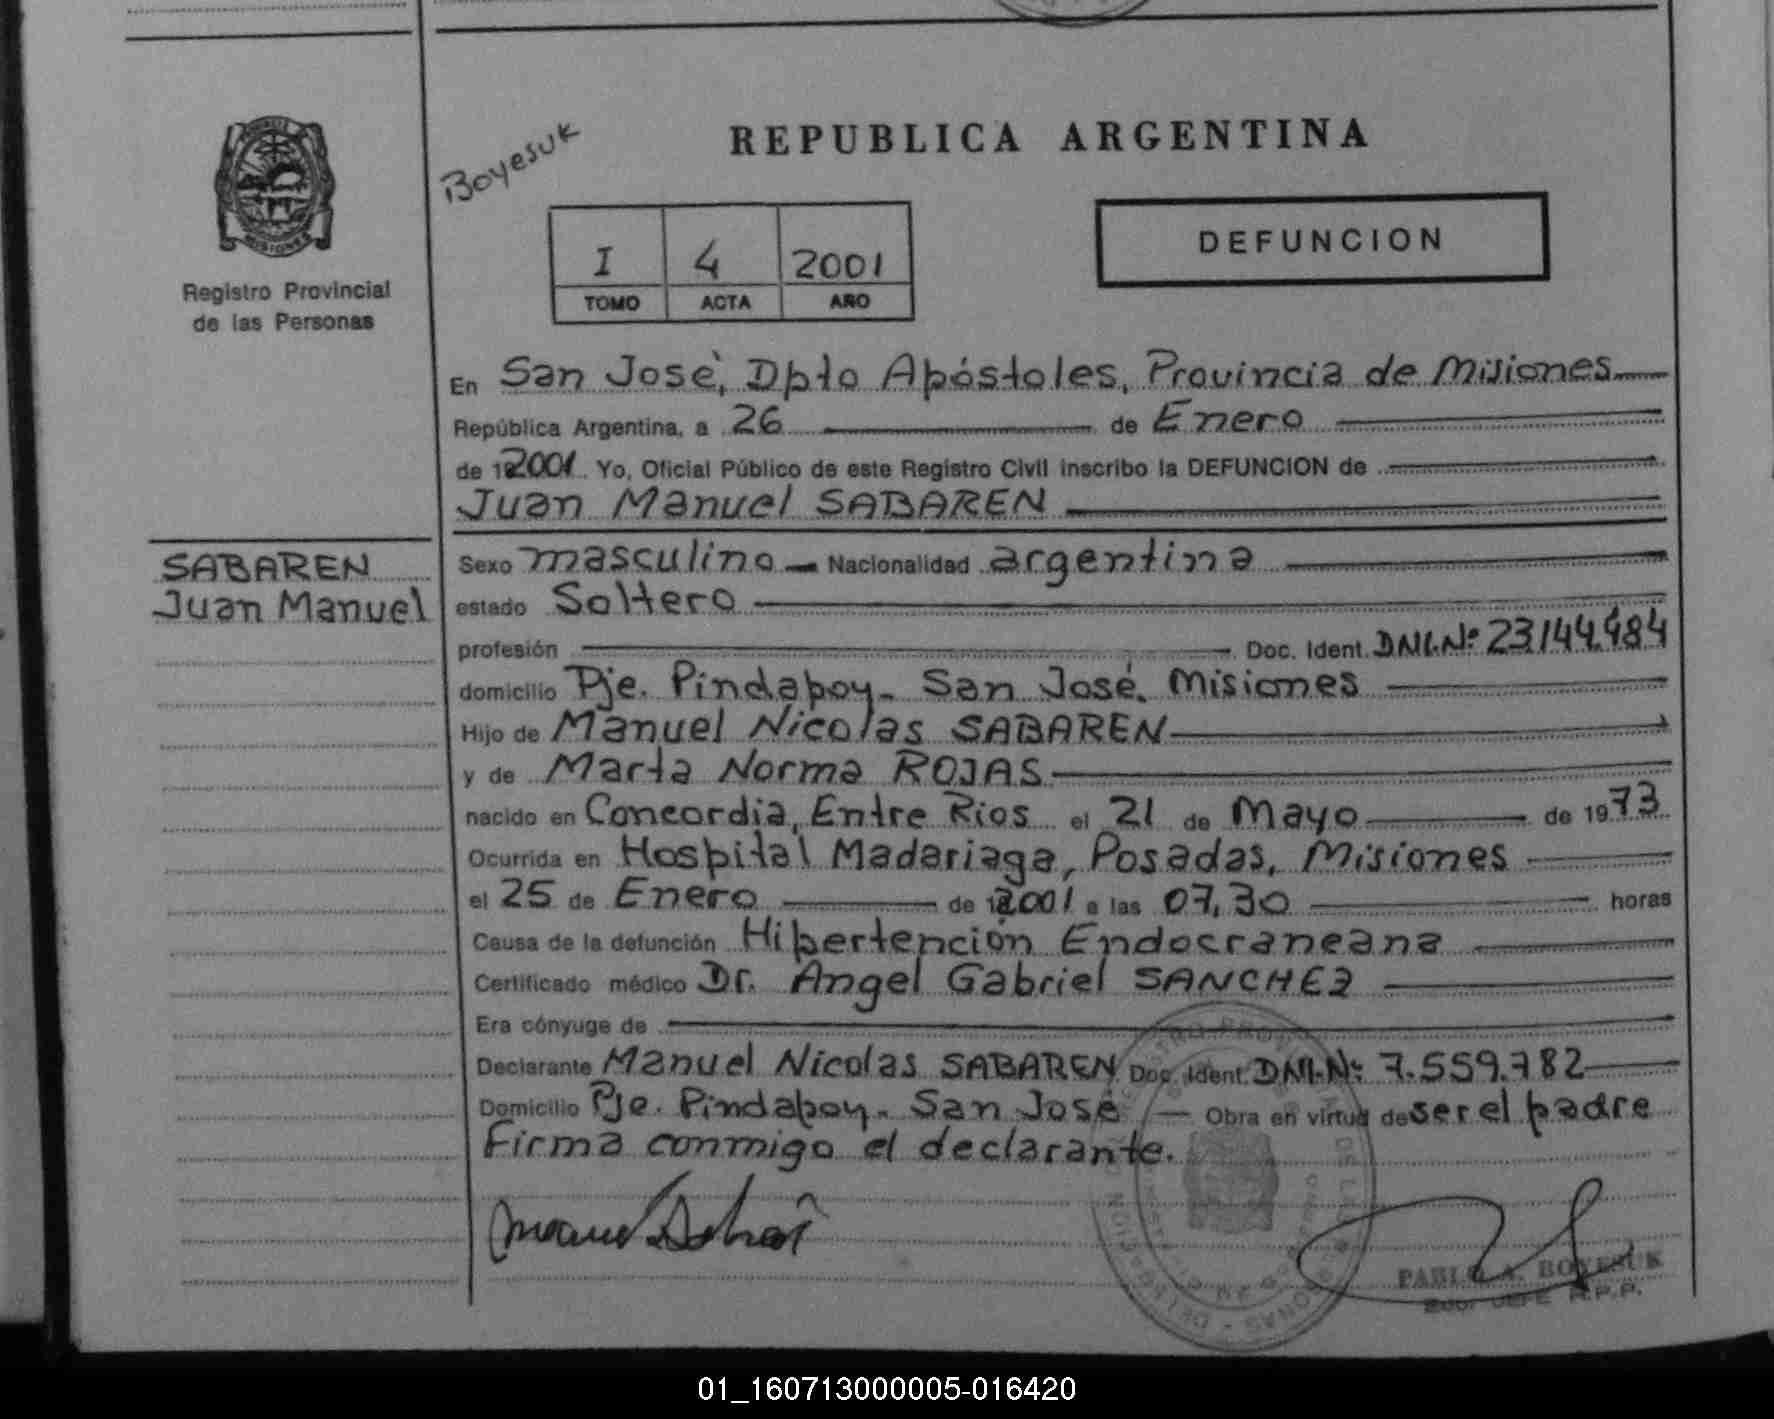 REPUBLICA ARGENTINA
Boyesuk
I 4 2001
TOMO ACTA AÑO
DEFUNCION
MISIONES
Registro Provincial
de las Personas
En San José, Dpto Apóstoles, Provincia de Misiones
República Argentina, a 26 de Enero
de 2001 Yo, Oficial Público de este Registro Civil inscribo la DEFUNCION de
Juan Manuel SABAREN
SABAREN
Juan Manuel
Sexo masculino Nacionalidad argentina
estado Soltero
profesión Doc. Ident. DNI.Nº 23.144.484
domicilio Pje. Pindapoy - San José, Misiones
Hijo de Manuel Nicolas SABAREN
y de Marta Norma ROJAS
nacido en Concordia, Entre Rios el 21 de Mayo de 1973
Ocurrida en Hospital Madariaga, Posadas, Misiones
el 25 de Enero de 2001 a las 07,30 horas
Causa de la defunción Hipertención Endocraneana
Certificado médico Dr. Angel Gabriel SANCHEZ
Era cónyuge de
Declarante Manuel Nicolas SABAREN Doc. Ident. DNI.Nº 7.559.782
Domicilio Pje. Pindapoy - San José Obra en virtud de ser el padre
Firma conmigo el declarante.
PABLO A. BOYESUK
JEFE R.P.P.
01_160713000005-016420